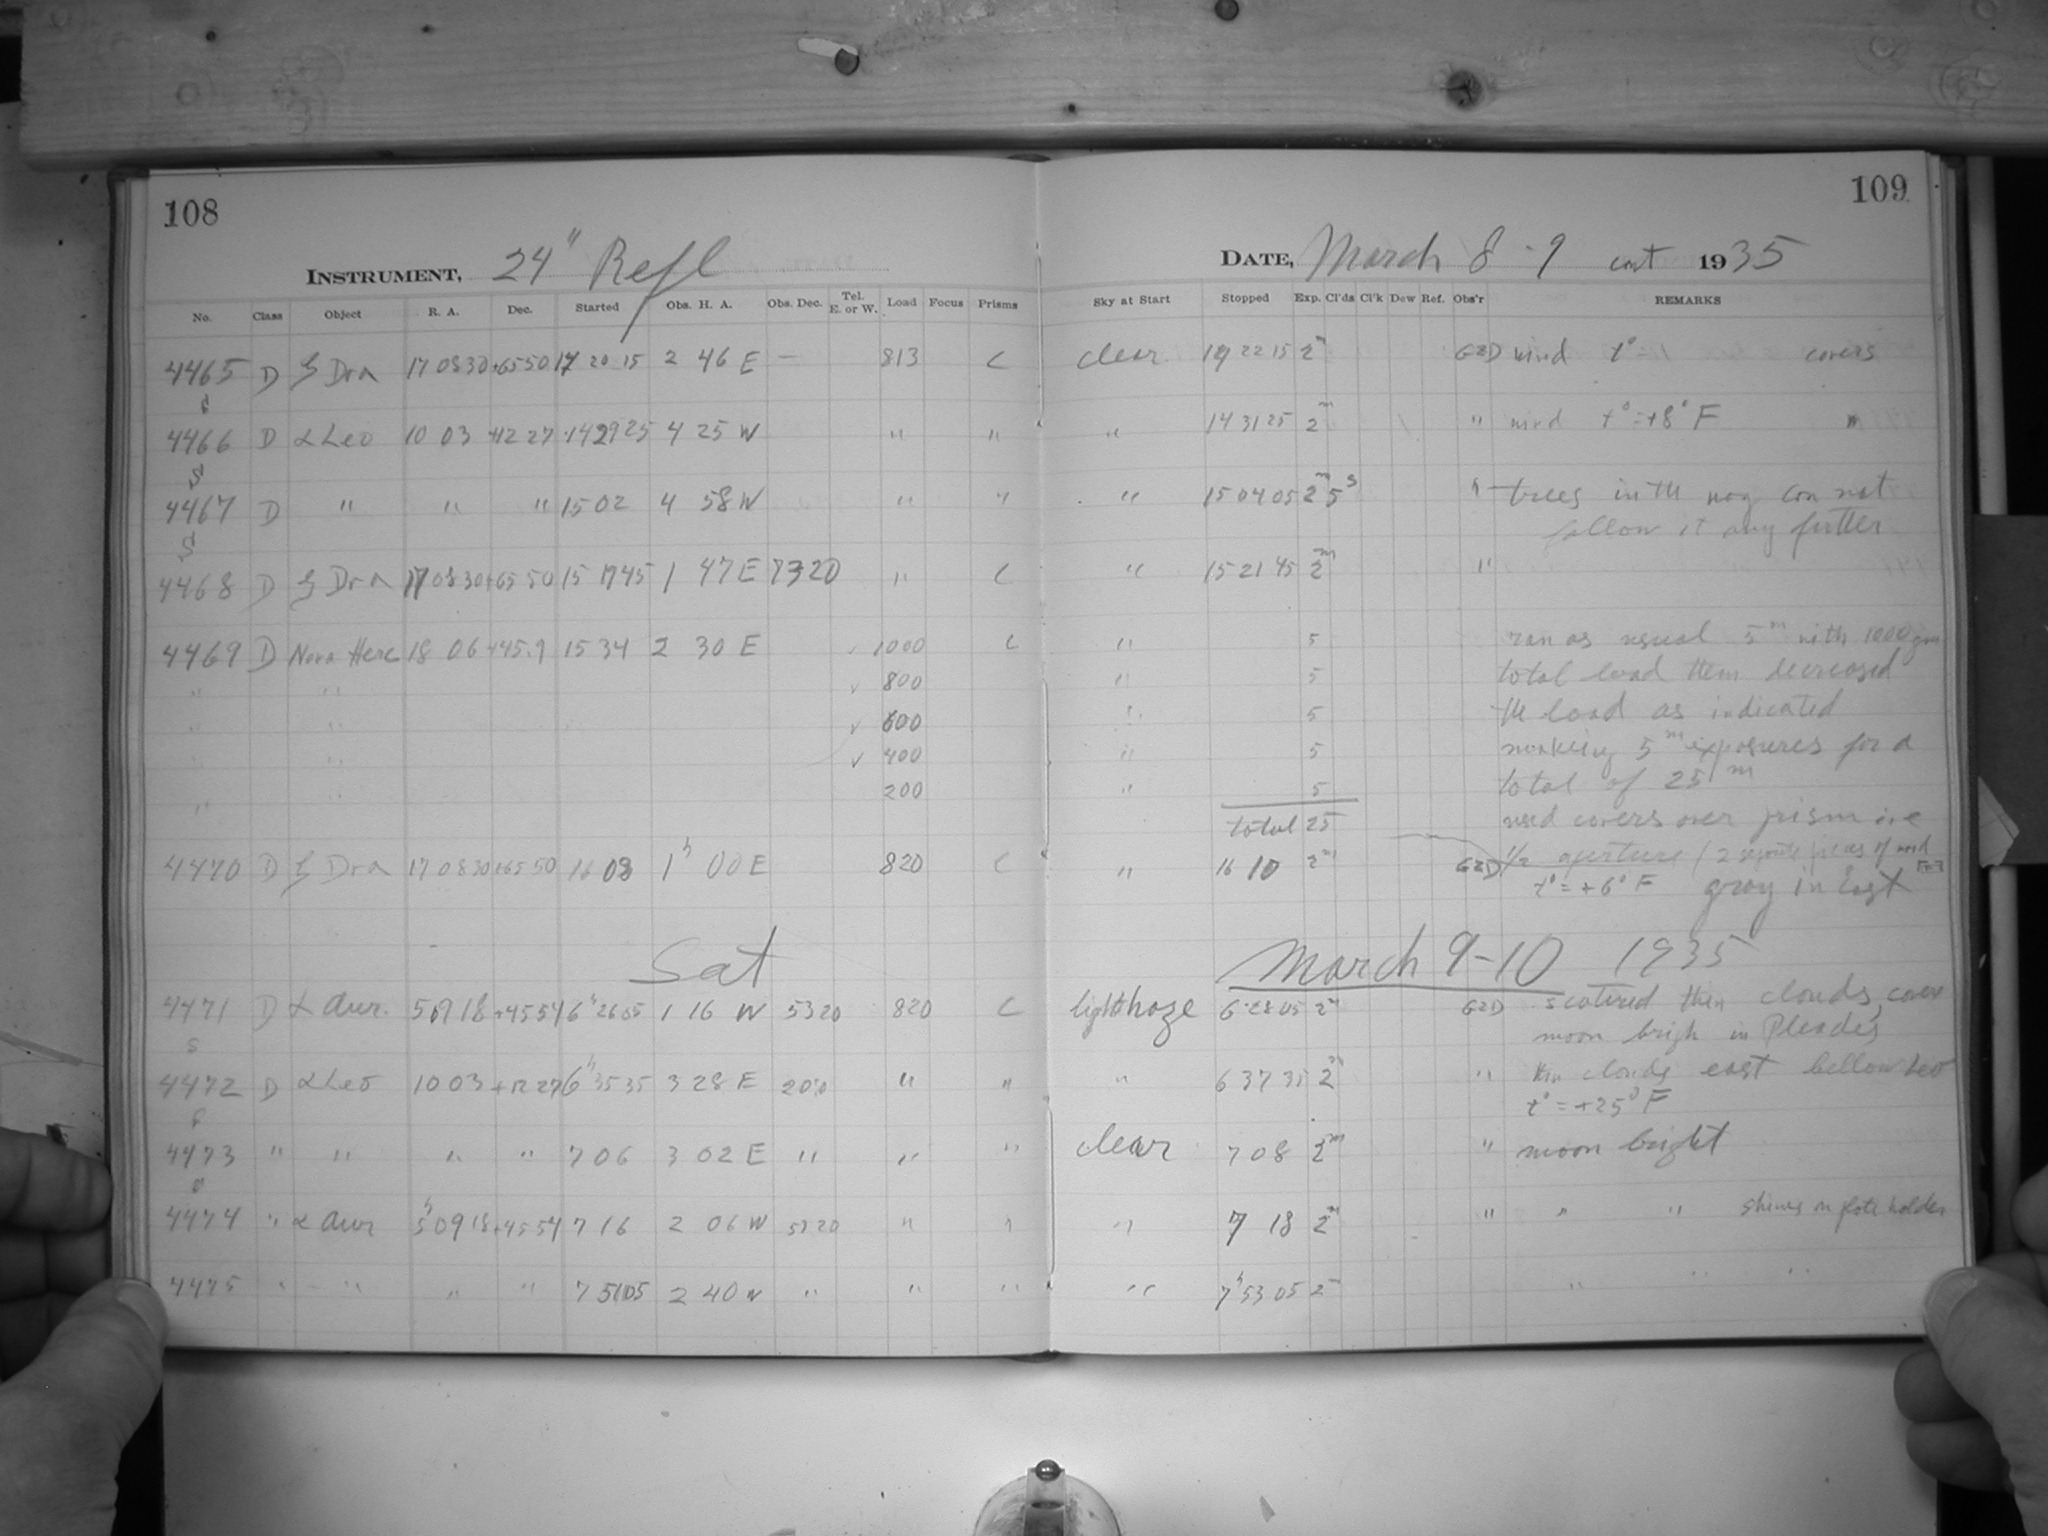 108
INSTRUMENT, 24" Refl
No. Class Object R. A. Dec. Started Obs. H. A. Obs. Dec. Tel. E. or W. Load Focus Prisms
4465 D ζ Dra 17 08 30 +65 50 17 20 15 2 46 E — 813 C
s
4466 D α Leo 10 03 +12 27 14 29 25 4 25 W " "
S
4467 D " " " 15 02 4 58 W " "
S
4468 D ζ Dra 17 08 30 +65 50 15 17 45 1 47 E 7320 " C
4469 D Nova Herc 18 06 +45.9 15 34 2 30 E ✓ 1000 C
" " ✓ 800
" " ✓ 600
" " ✓ 400
" " 200
4470 D ζ Dra 17 08 30 +65 50 16 08 1ʰ 00 E 820 C
Sat
4471 D α Aur. 5 09 18 +45 54 6ʰ 26 05 1 16 W 5320 820 C
s
4472 D α Leo 10 03 +12 27 6ʰ 35 35 3 28 E 200 " "
s
4473 " " " " 7 06 3 02 E " " "
s
4474 " α Aur 5ʰ 09 18 +45 54 7 16 2 06 W 5320 " "
4475 " " " " 7 51 05 2 40 W " " "
109
DATE, March 8-9 cont 1935
Sky at Start Stopped Exp. Cl'ds Cl'k Dew Ref. Obs'r REMARKS
clear 22 15 2ᵐ GZD wind t° = covers
" 14 31 25 2ᵐ " wind t° = +8° F "
" 15 04 05 2ᵐ 5ˢ " trees in th way can not
follow it any further
" 15 21 45 2ᵐ "
" 5 ran as usual 5ᵐ with 1000 gm
" 5 total load then decreased
" 5 the load as indicated
" 5 making 5ᵐ exposures for a
" 5 total of 25ᵐ
total 25 used covers over prism
" 16 10 2ᵐ GZD 1/2 aperture (2 separate pieces of wood
t° = +6° F gray in East
March 9-10 1935
light haze 6 28 05 2ᵐ GZD scatered thin clouds, cover
moon brigh in Pleades
" 6 37 35 2ᵐ " thin clouds east bellow Leo
t° = +25° F
clear 7 08 2ᵐ " moon bright
" 7 18 2ᵐ " " " shines on plate holder
" 7ʰ 53 05 2ᵐ " " "